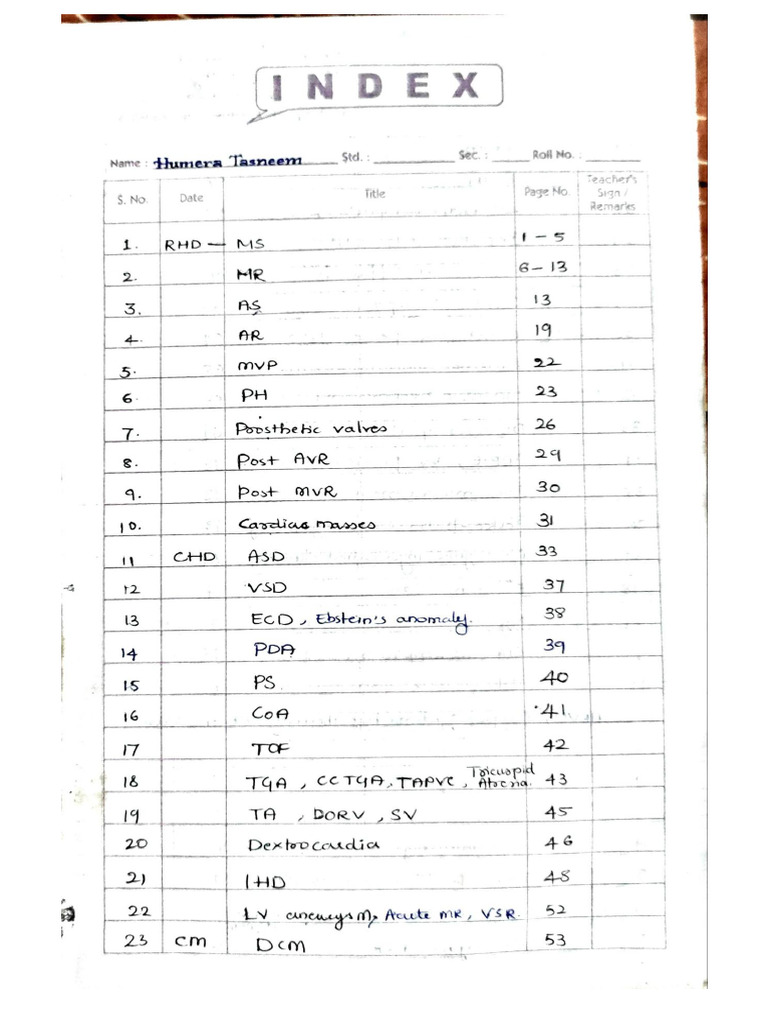 INDEX
Name : Humera Tasneem Std. : Sec. : Roll No. :
S. No. Date Title Page No. Teacher's Sign / Remarks
1. RHD — MS 1 - 5
2. MR 6 - 13
3. AS 13
4. AR 19
5. MVP 22
6. PH 23
7. Prosthetic valves 26
8. Post AVR 29
9. Post MVR 30
10. Cardiac masses 31
11 CHD ASD 33
12 VSD 37
13 ECD, Ebstein's anomaly. 38
14 PDA 39
15 PS 40
16 CoA 41
17 TOF 42
18 TGA, CCTGA, TAPVC, Tricuspid Atresia. 43
19 TA, DORV, SV 45
20 Dextrocardia 46
21 IHD 48
22 LV aneurysm, Acute MR, VSR. 52
23 CM DCM 53